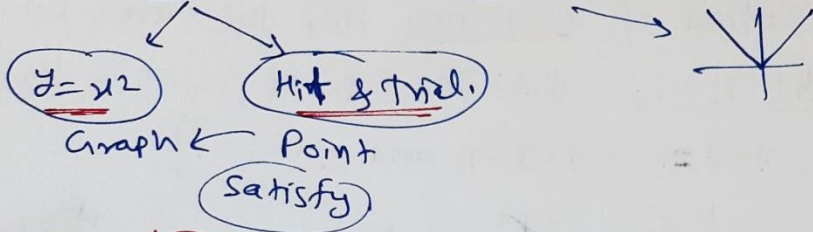 y=x2 Hit & trial.
Graph ← Point
Satisfy